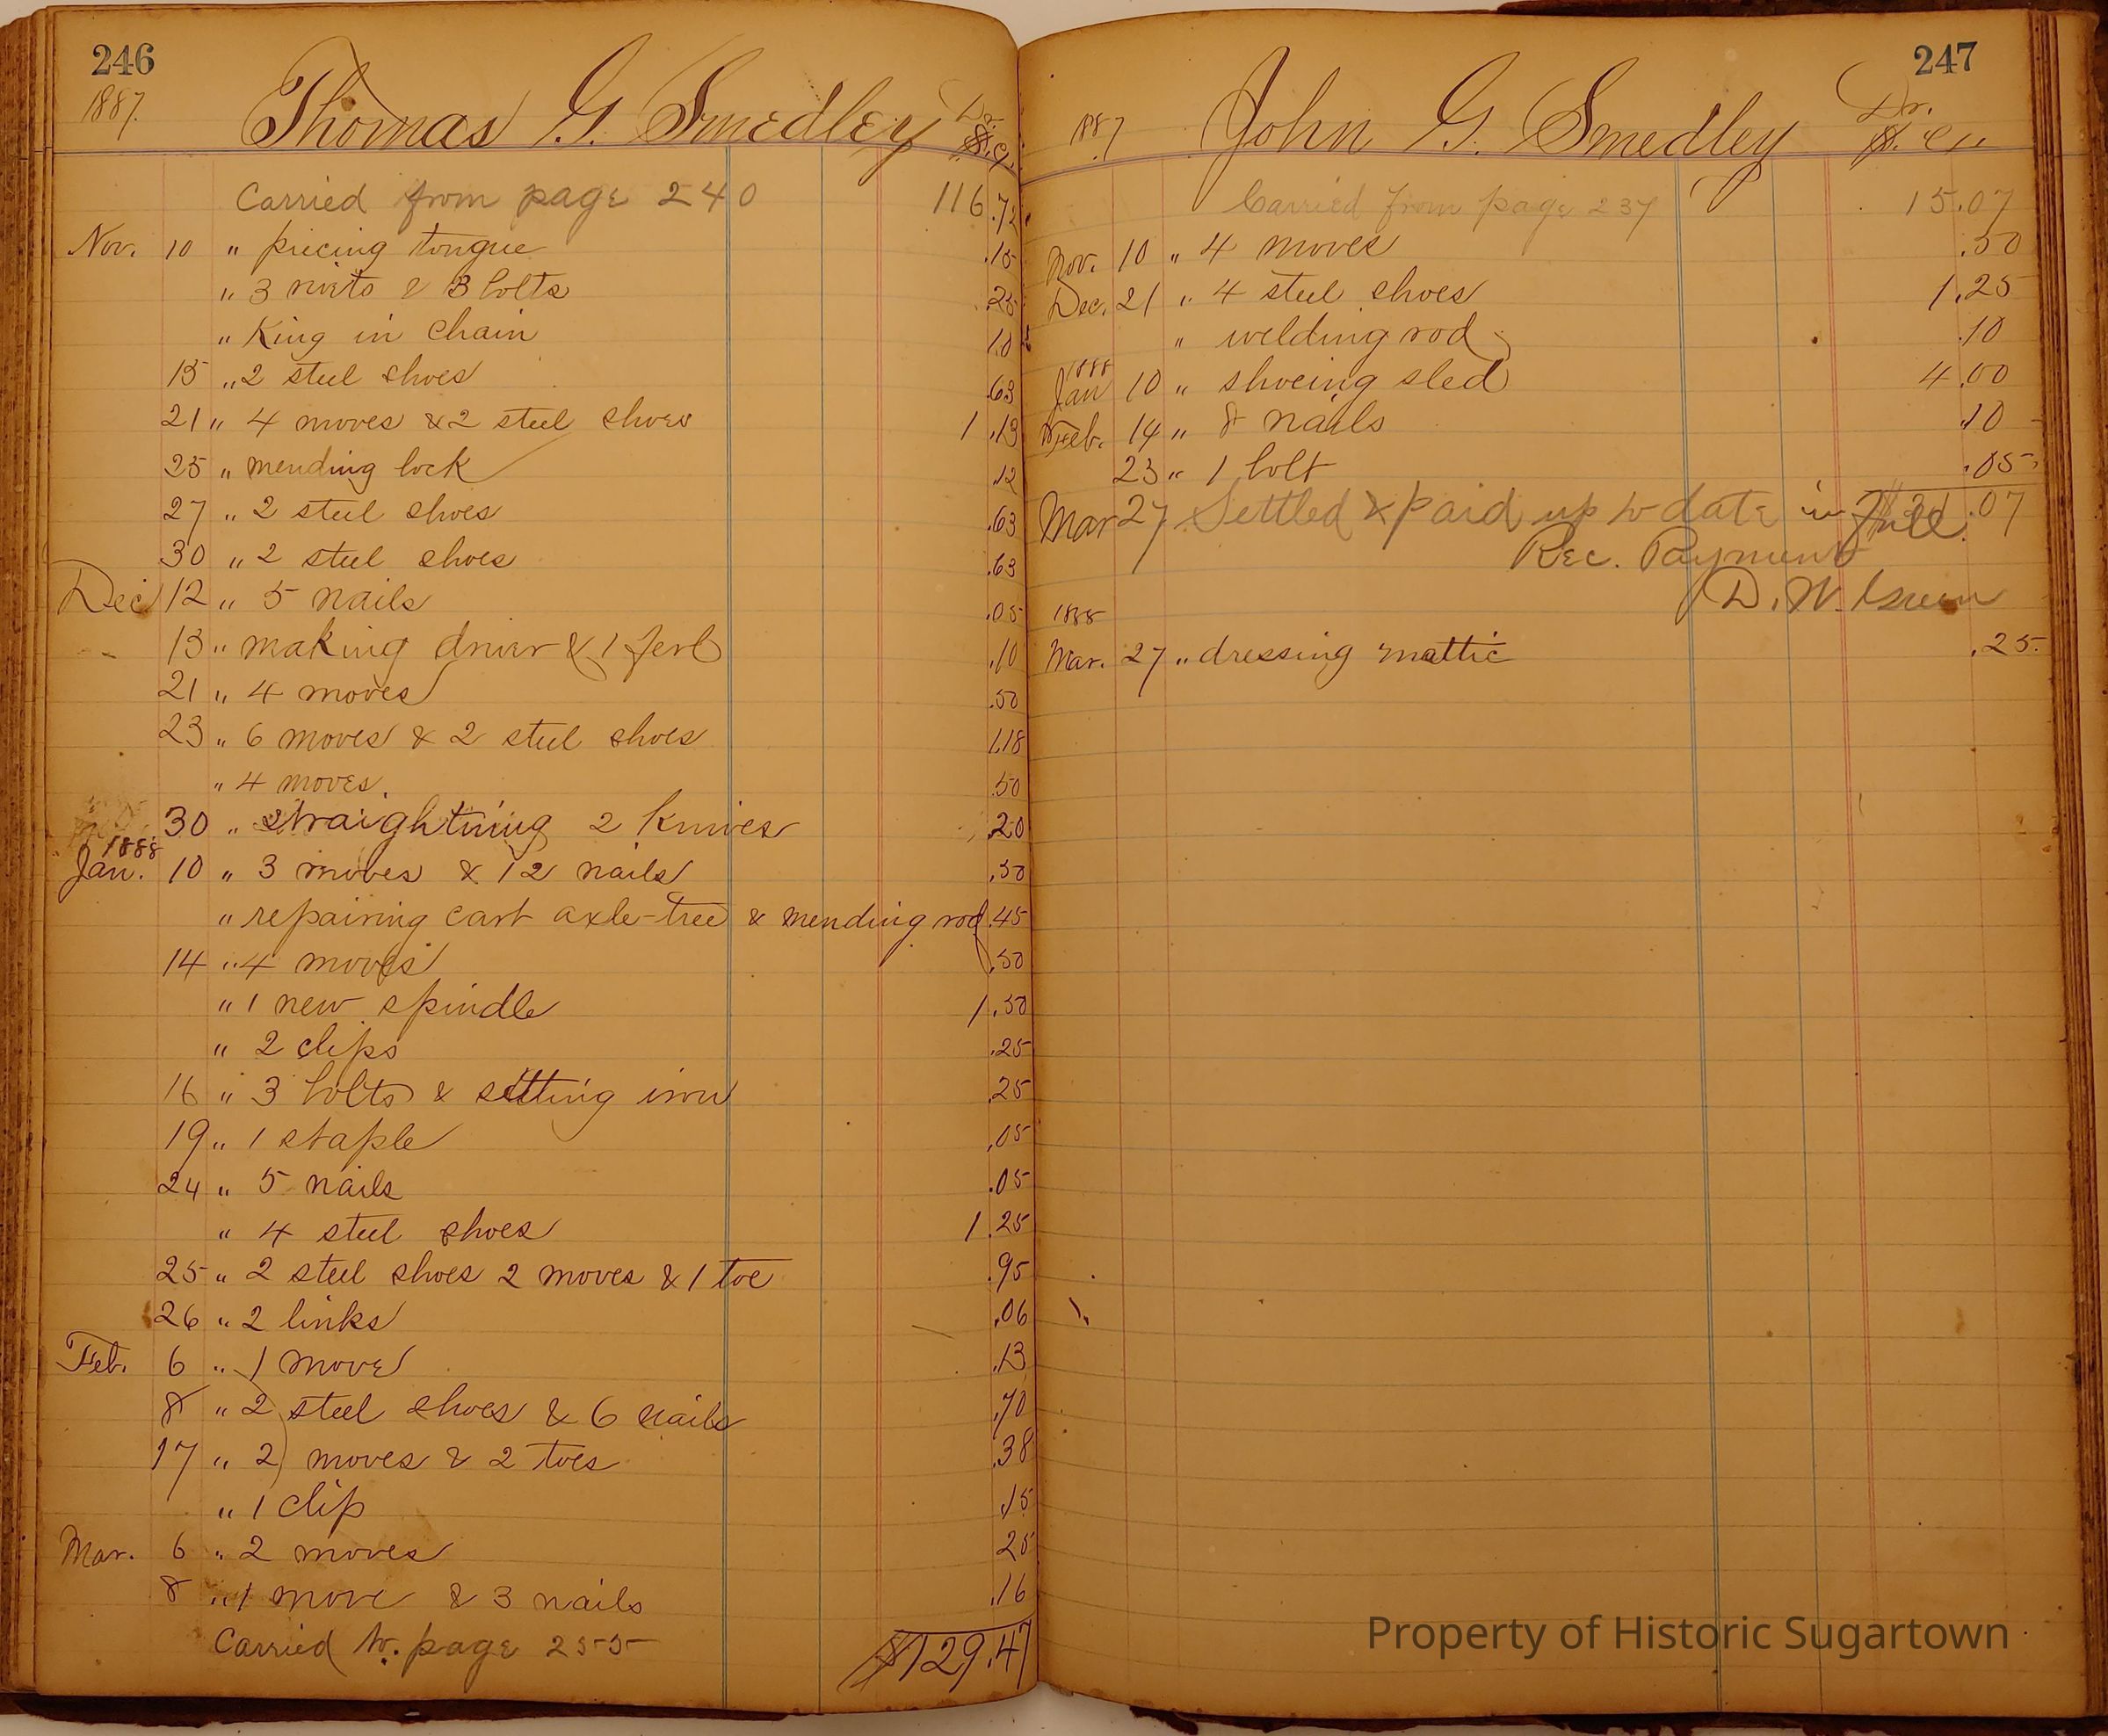 246
1887.
Thomas G. Smedley Dr.
$. c.
Carried from page 240 116.72
Nov. 10 " piecing tongue .15
" 3 rivits & 3 bolts .25
" King in chain 1.0
15 " 2 steel shoes .63
21 " 4 moves & 2 steel shoes 1.13
25 " mending lock .12
27 " 2 steel shoes .63
30 " 2 steel shoes .63
Dec 12 " 5 nails .05
13 " making driver & 1 ferl .10
21 " 4 moves .50
23 " 6 moves & 2 steel shoes 1.18
" 4 moves. .50
30 " straightning 2 knives .20
1888
Jan. 10 " 3 moves & 12 nails .50
" repairing cart axle-tree & mending rod .45
14 " 4 moves .50
" 1 new spindle 1.50
" 2 clips .25
16 " 3 bolts & setting iron .25
19 " 1 staple .05
24 " 5 nails .05
" 4 steel shoes 1.25
25 " 2 steel shoes 2 moves & 1 toe .95
26 " 2 links .06
Feb. 6 " 1 move .13
8 " 2 steel shoes & 6 nails .70
17 " 2 moves & 2 toes .38
" 1 clip .15
Mar. 6 " 2 moves 25
8 " 1 move & 3 nails .16
Carried to. page 255 $129.47
247
1887
John G. Smedley Dr.
$. c
Carried from page 237 15.07
Nov. 10 " 4 moves .50
Dec. 21 " 4 steel shoes 1.25
" welding rod .10
1888
Jan 10 " shoeing sled 4.00
Feb. 14 " 8 nails .10
23 " 1 bolt .05
Mar 27 Settled & paid up to date in full. .07
Rec. Payment
D. W.
1888
Mar. 27 " dressing mattic .25
Property of Historic Sugartown